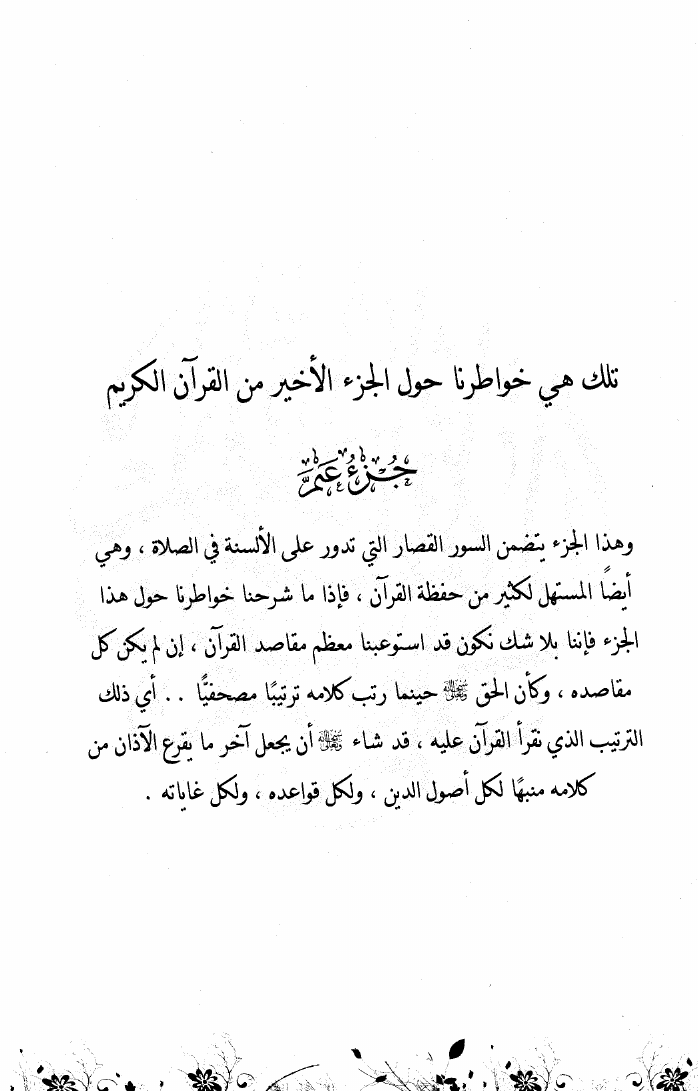 تلك هي خواطرنا حول الجزء الأخير من القرآن الكريم
جُزْءُ عَمَّ
وهذا الجزء يتضمن السور القصار التي تدور على الألسنة في الصلاة ، وهي
أيضًا المستهل لكثير من حفظة القرآن ، فإذا ما شرحنا خواطرنا حول هذا
الجزء فإننا بلا شك نكون قد استوعبنا معظم مقاصد القرآن ، إن لم يكن كل
مقاصده ، وكأن الحق حينما رتب كلامه ترتيبًا مصحفيًّا . . أي ذلك
الترتيب الذي نقرأ القرآن عليه ، قد شاء أن يجعل آخر ما يقرع الآذان من
كلامه منبهًا لكل أصول الدين ، ولكل قواعده ، ولكل غاياته .